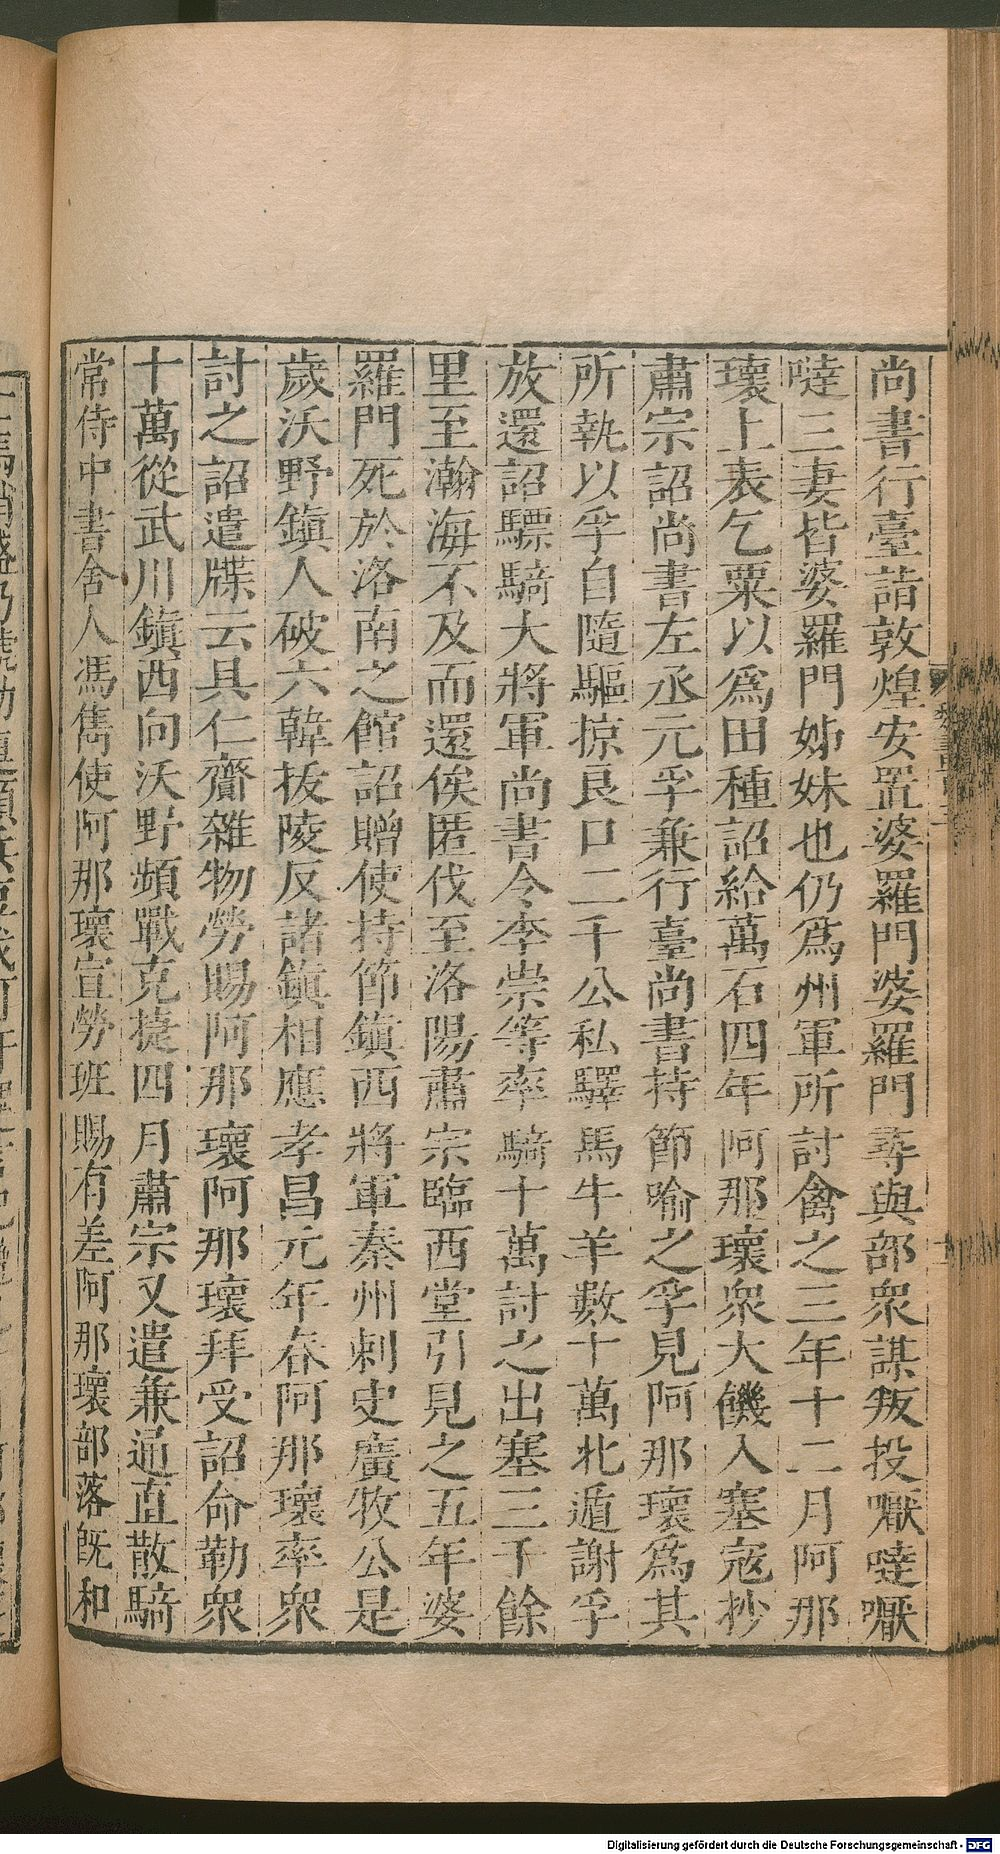 尚書行臺詣敦煌安置婆羅門婆羅門尋與部衆謀叛投嚈噠嚈
噠三妻皆婆羅門姊妹也仍爲州軍所討禽之三年十二月阿那
瓌上表乞粟以爲田種詔給萬石四年阿那瓌衆大饑入塞寇抄
肅宗詔尚書左丞元孚兼行臺尚書持節喻之孚見阿那瓌爲其
所執以孚自隨驅掠良口二千公私驛馬牛羊數十萬北遁謝孚
放還詔驃騎大將軍尚書令李崇等率騎十萬討之出塞三千餘
里至瀚海不及而還俟匿伐至洛陽肅宗臨西堂引見之五年婆
羅門死於洛南之館詔贈使持節鎭西將軍秦州刺史廣牧公是
歲沃野鎭人破六韓拔陵反諸鎭相應孝昌元年春阿那瓌率衆
討之詔遣牒云具仁齎雜物勞賜阿那瓌阿那瓌拜受詔命勒衆
十萬從武川鎭西向沃野頻戰克捷四月肅宗又遣兼通直散騎
常侍中書舍人馮儁使阿那瓌宣勞班賜有差阿那瓌部落旣和
Digitalisierung gefördert durch die Deutsche Forschungsgemeinschaft - DFG